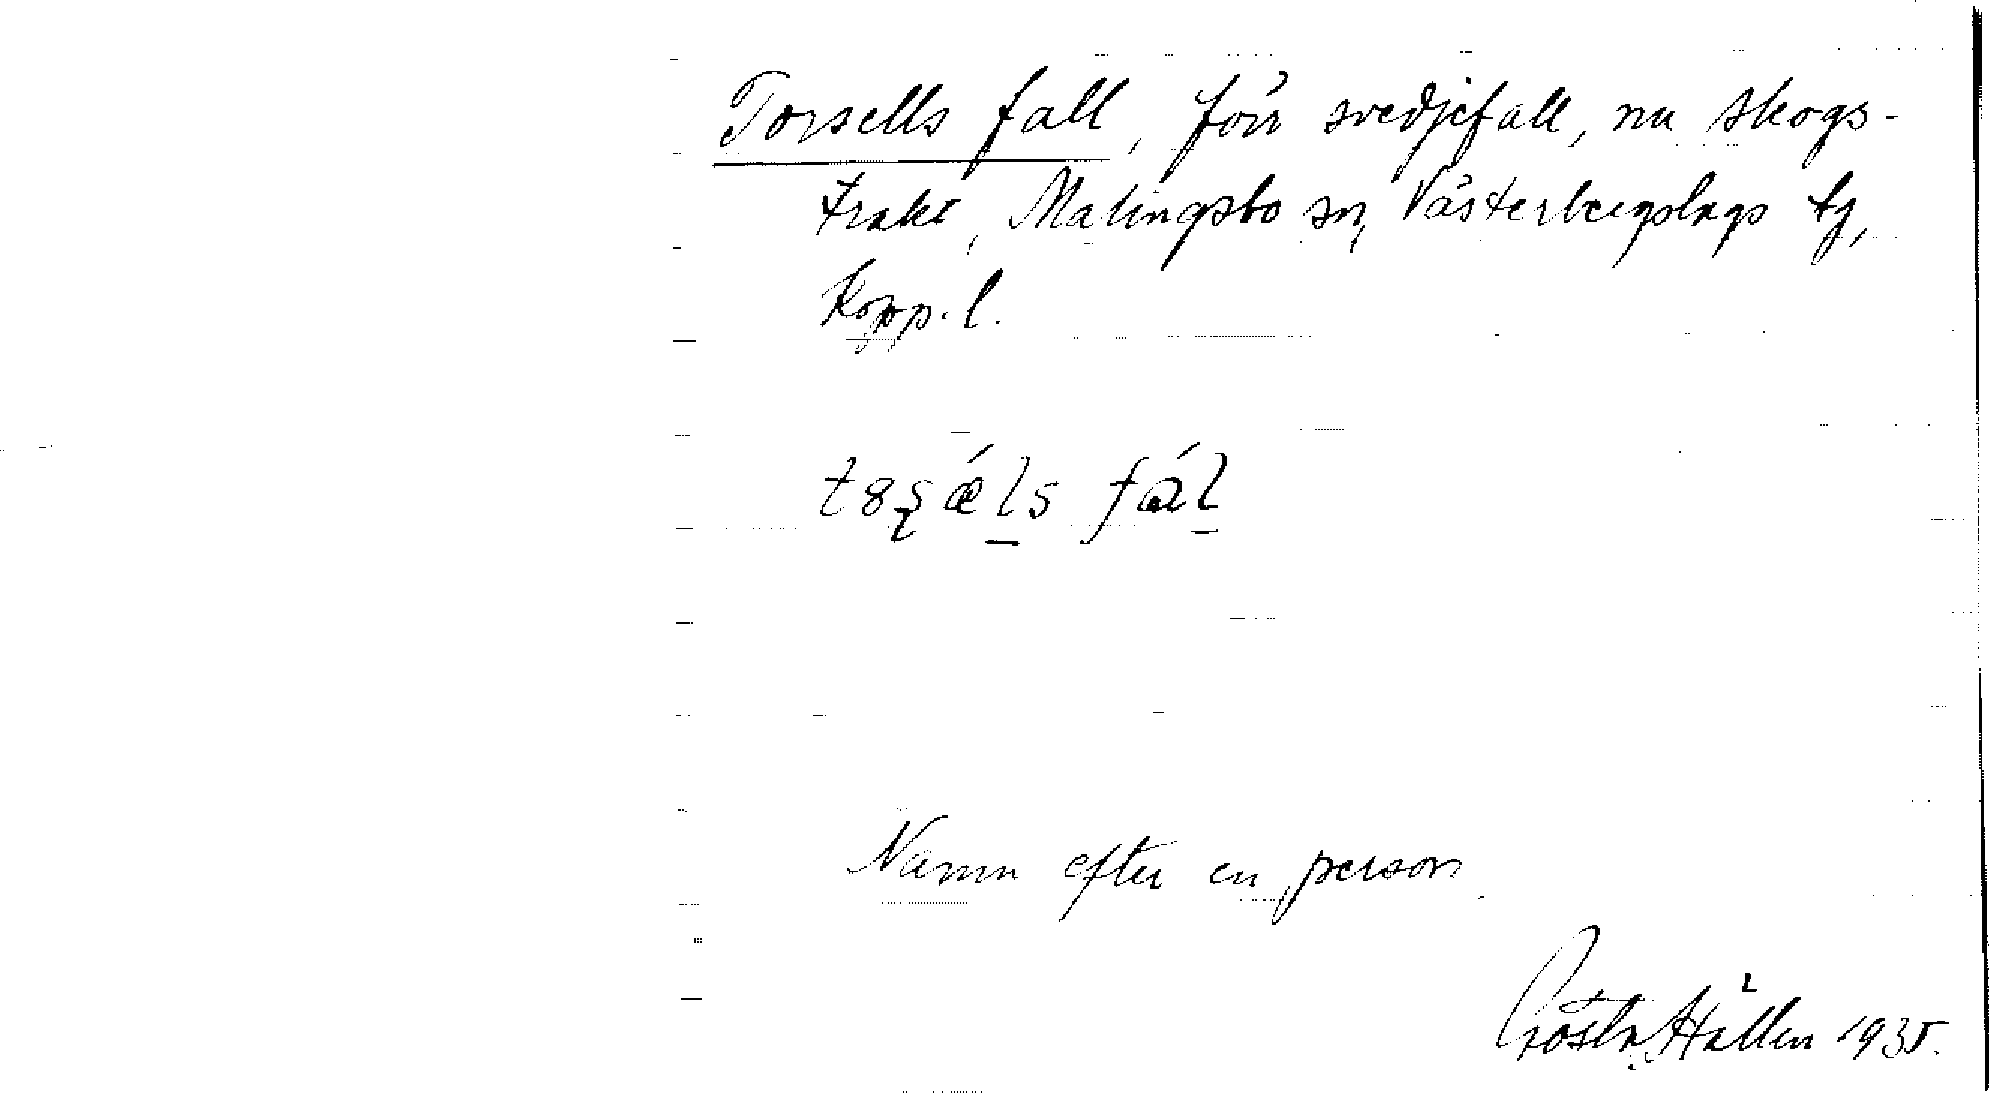 Torsells fall, förr svedjefall, nu skogs-
trakt, Malingsbo sn, Västerbergslags tg,
Kopp. l.
t8ʂǽls fál
Namn efter en person.
Gösta Hållén 1935.